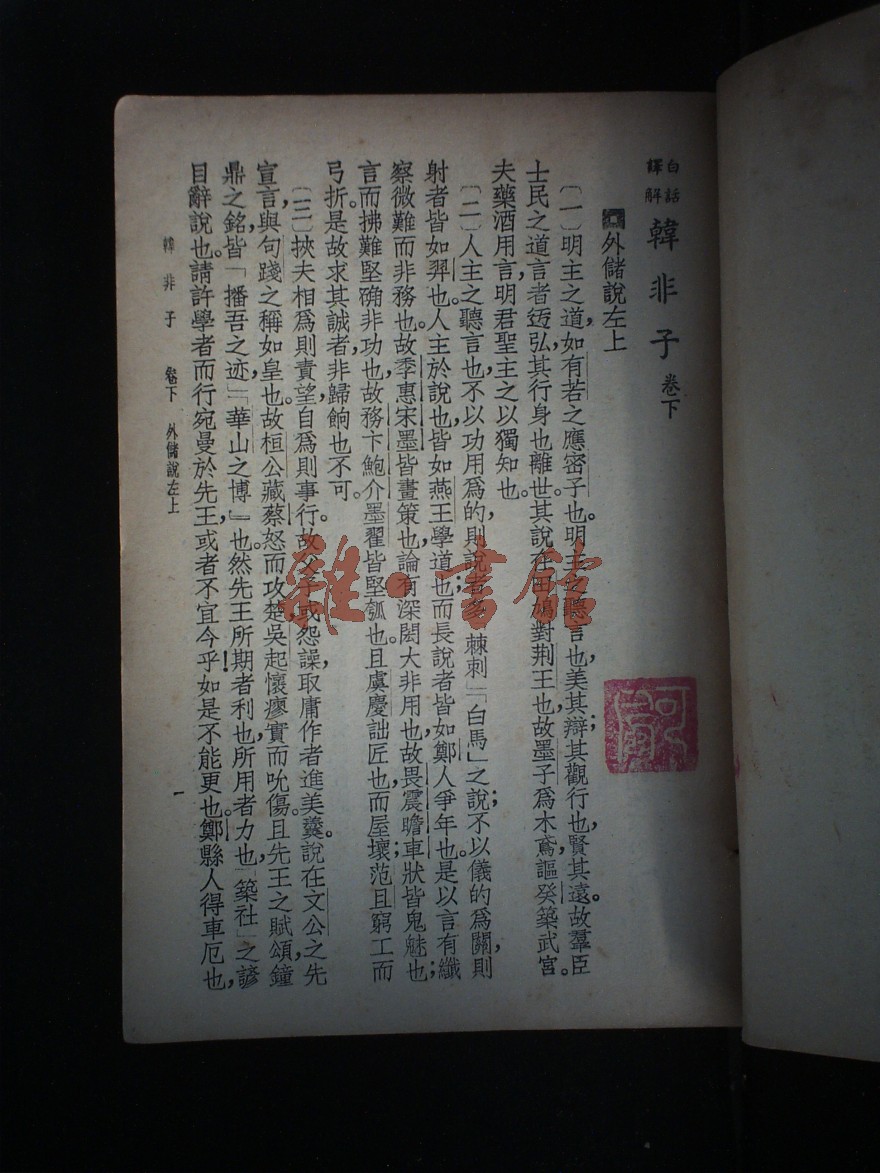 白話譯解 韓非子 卷下
外儲說左上
〔一〕明主之道，如有若之應密子也。明主之聽言也，美其辯；其觀行也，賢其遠。故羣臣
士民之道言者迃弘，其行身也離世。其說在田鳩對荆王也。故墨子爲木鳶，謳癸築武宮。
夫藥酒用言，明君聖主之以獨知也。
〔二〕人主之聽言也，不以功用爲的，則說者多「棘刺」「白馬」之說；不以儀的爲關，則
射者皆如羿也。人主於說也，皆如燕王學道也；而長說者，皆如鄭人爭年也。是以言有纖
察微難而非務也。故季惠宋墨皆畫策也；論有深閎大非用也，故畏震瞻車狀皆鬼魅也；
言而拂難堅确非功也，故務卞鮑介墨翟皆堅瓠也。且虞慶詘匠也，而屋壞；范且窮工而
弓折。是故求其誠者，非歸餉也不可。
〔三〕挾夫相爲則責望，自爲則事行。故父子或怨譟，取庸作者進美羹。說在文公之先
宣言，與句踐之稱如皇也。故桓公藏蔡怒而攻楚，吳起懷瘳實而吮傷。且先王之賦頌，鐘
鼎之銘，皆「播吾之迹」，「華山之博」也。然先王所期者利也，所用者力也，「築社」之諺，
目辭說也。請許學者而行宛曼於先王，或者不宜今乎！如是不能更也。鄭縣人得車厄也，
韓非子 卷下 外儲說左上 一
雜·書館